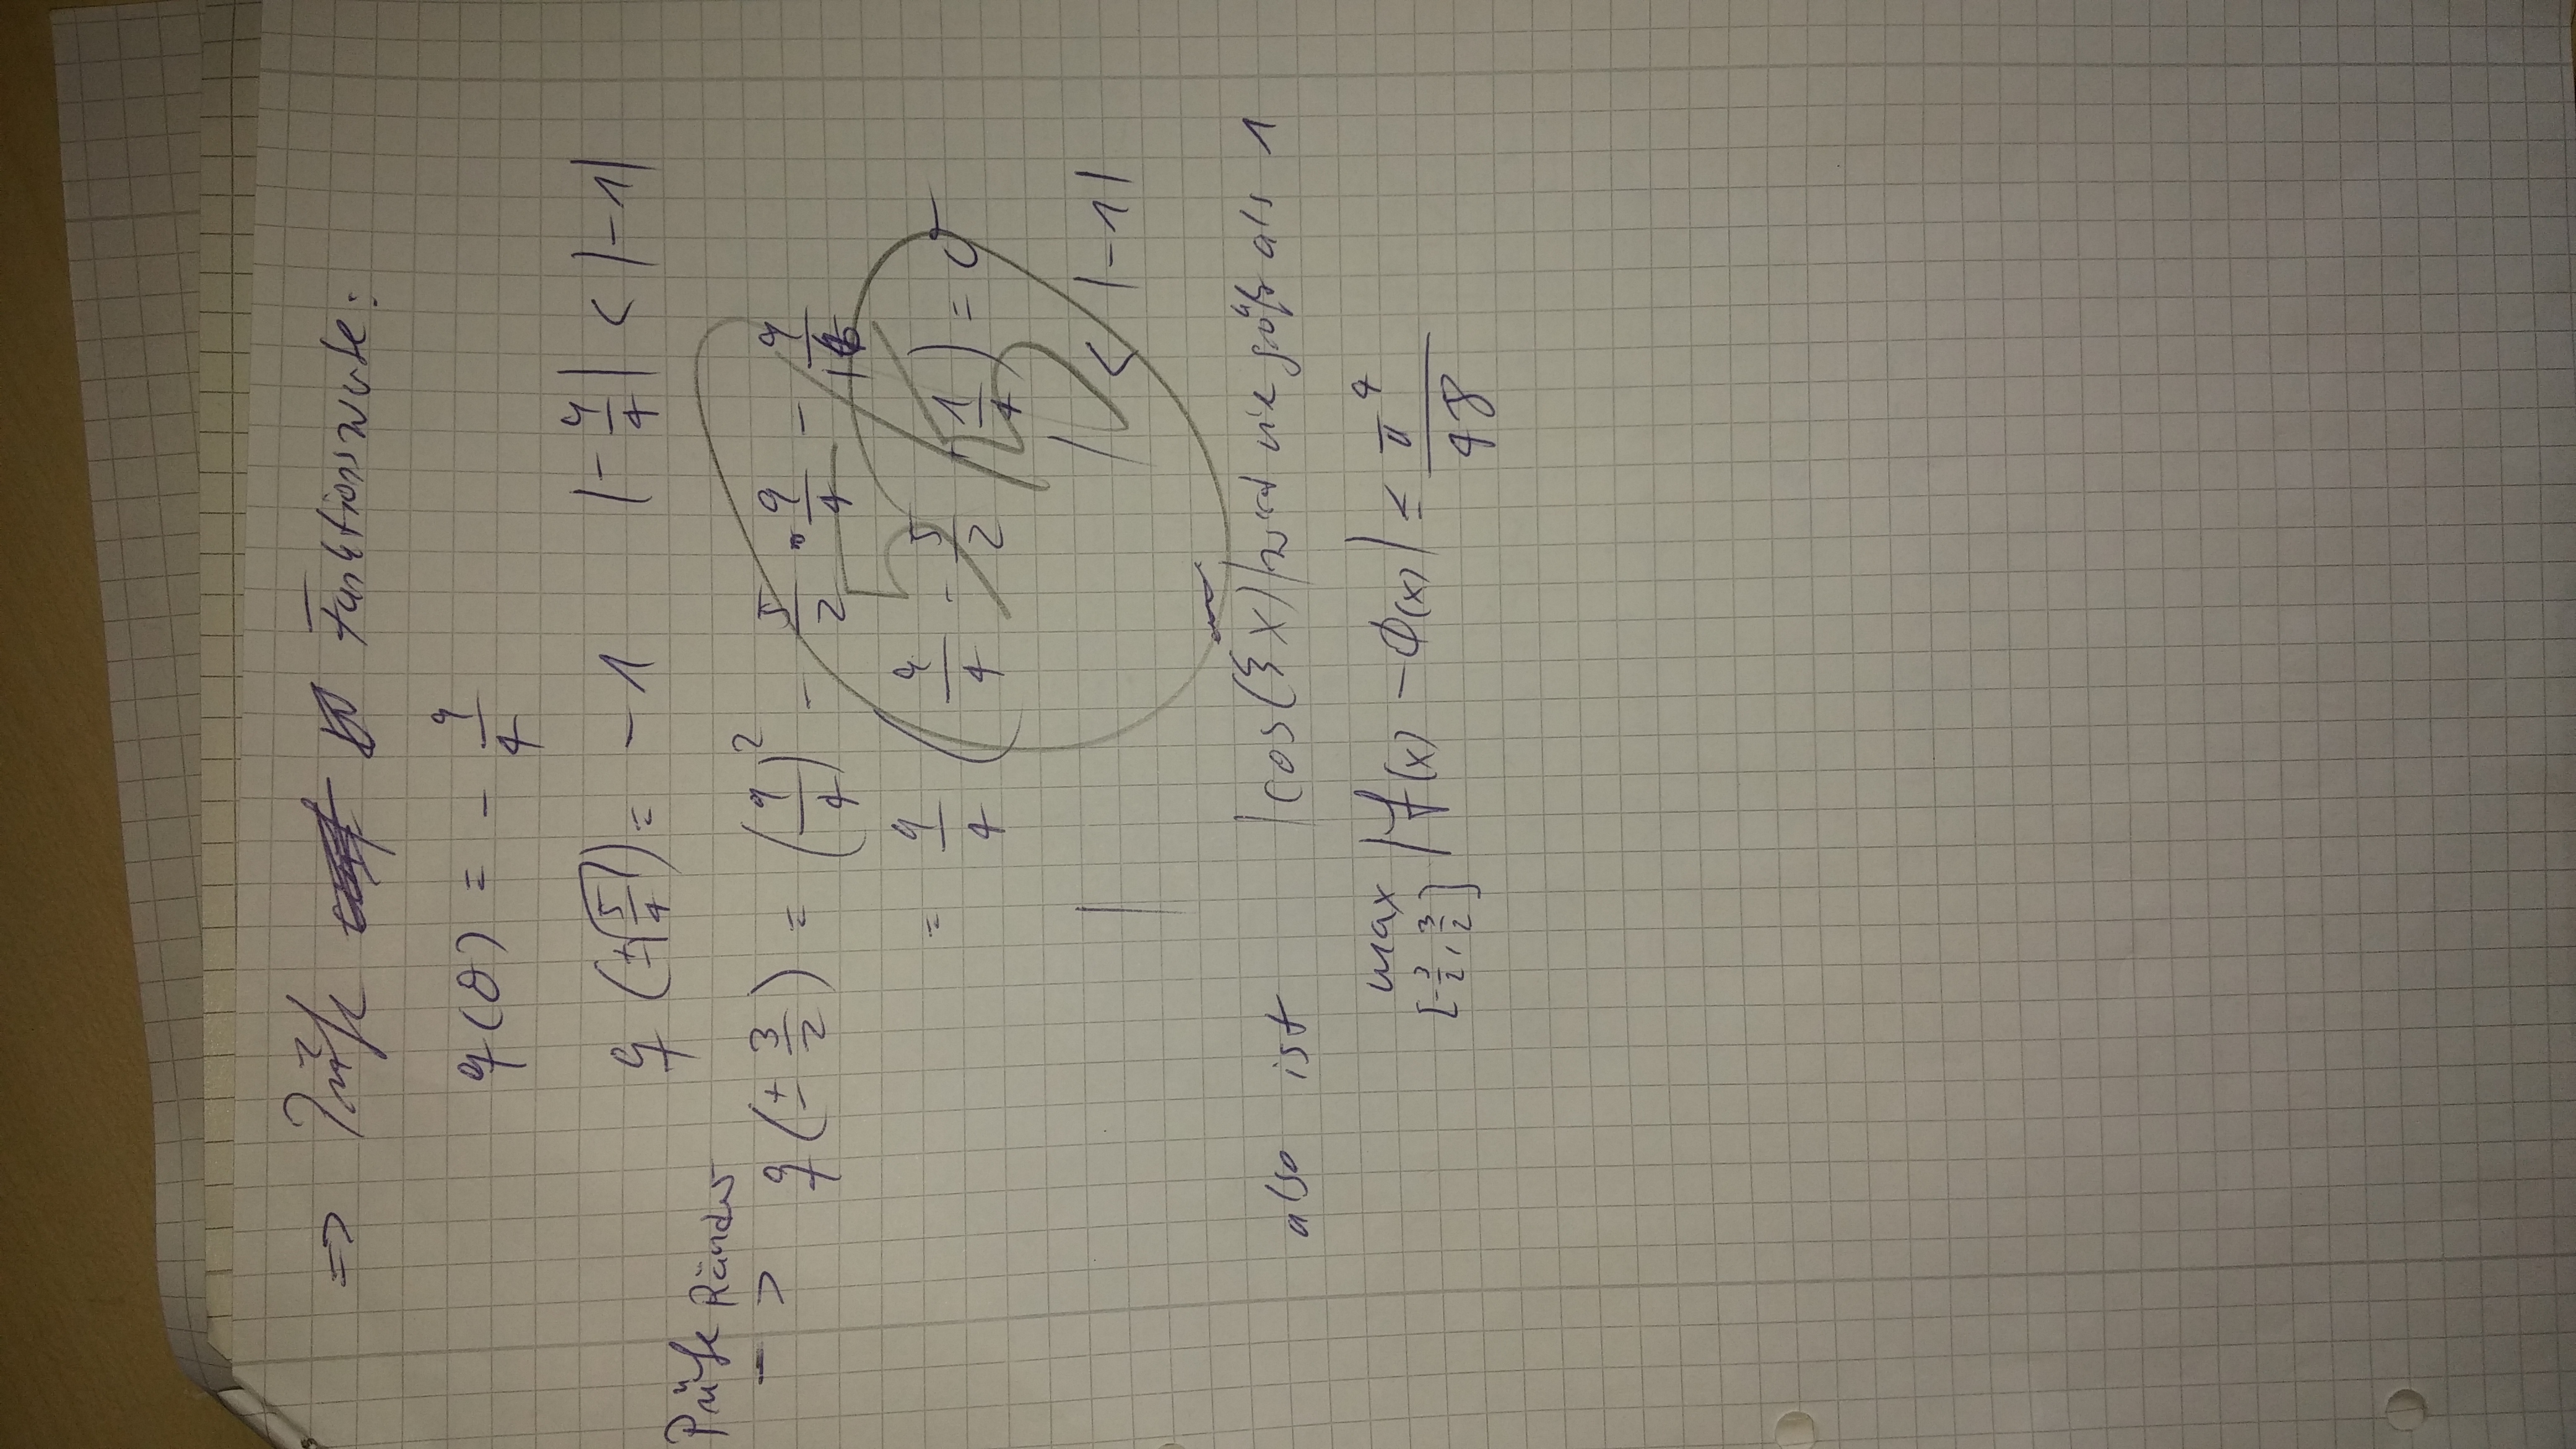 => Prüfe Funktionswerte:
q(0) = - 9/4
q(±√(5/4)) = -1 |-9/4| < |-1|
Prüfe Ränder
-> q(± 3/2) = (9/4)² - 5/2 · 9/4 - 9/16
= 9/4 (9/4 - 5/2 + 1/4) = 0
| | < |-1|
5/5
also ist |cos(ξx)| wird nie größer als 1
max |f(x) - Φ(x)| ≤ π⁴/48
[-3/2, 3/2]